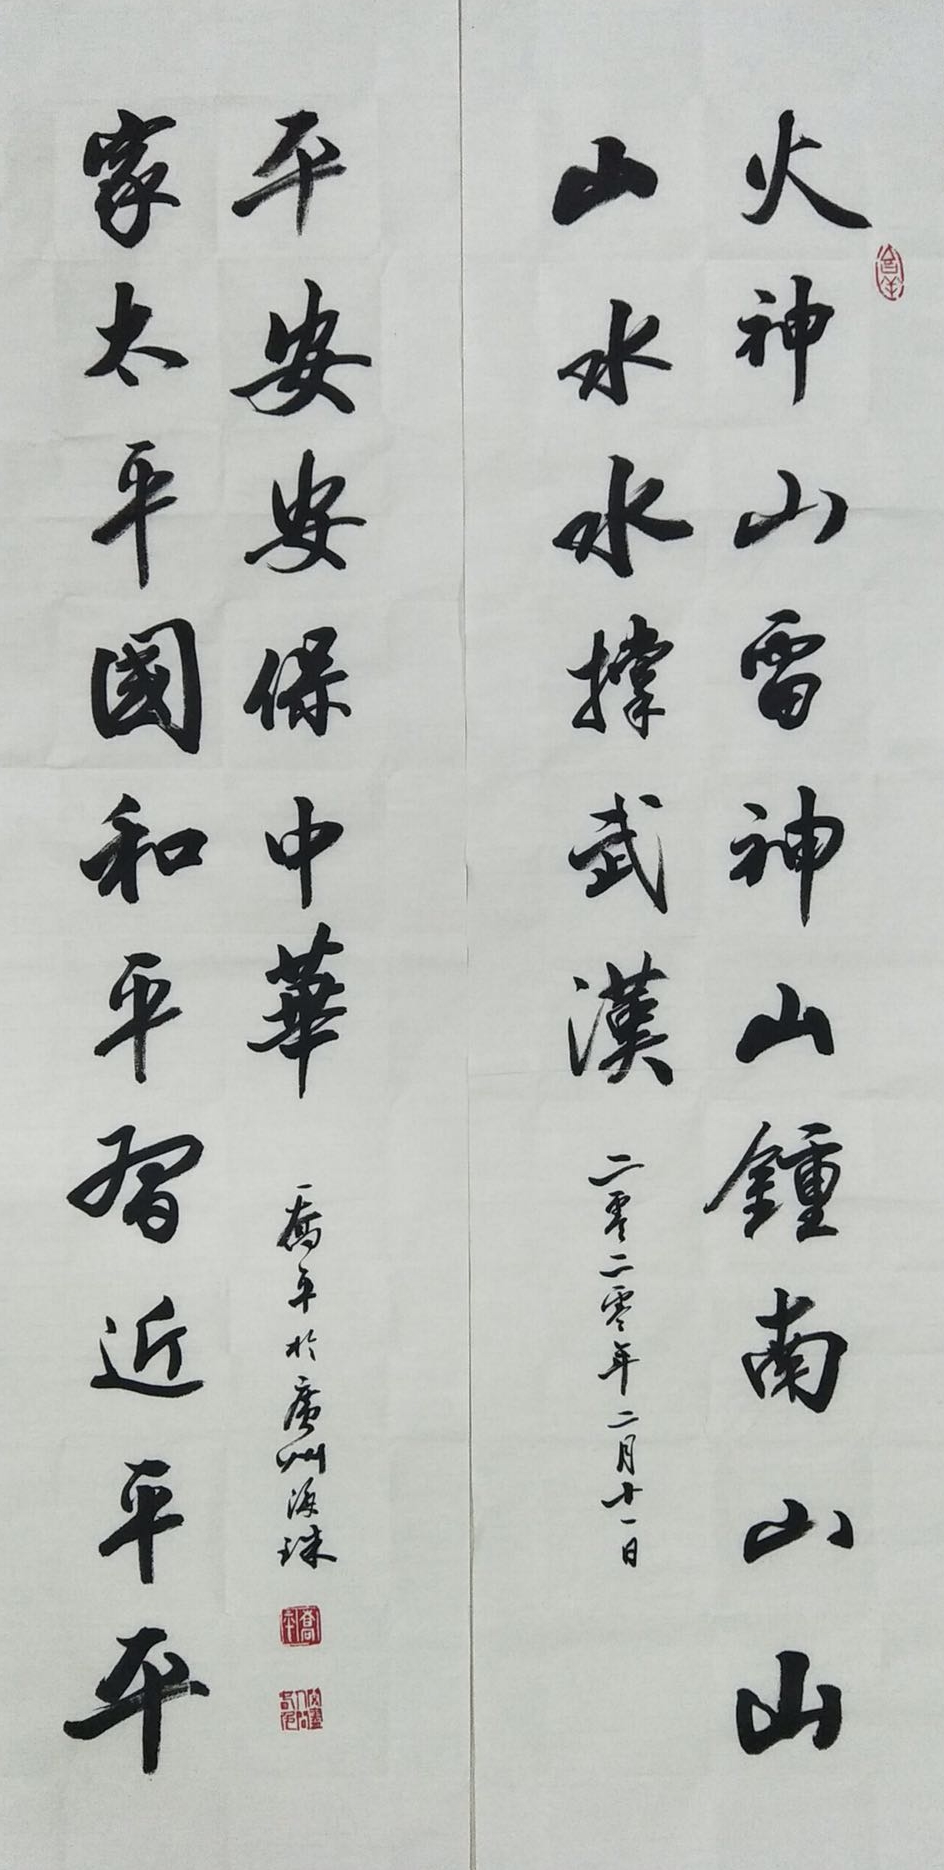 火神山雷神山鍾南山山
山水水撐武漢
二零二零年二月十一日
家太平國和平習近平平
平安安保中華
喬平於廣州海珠
喬平